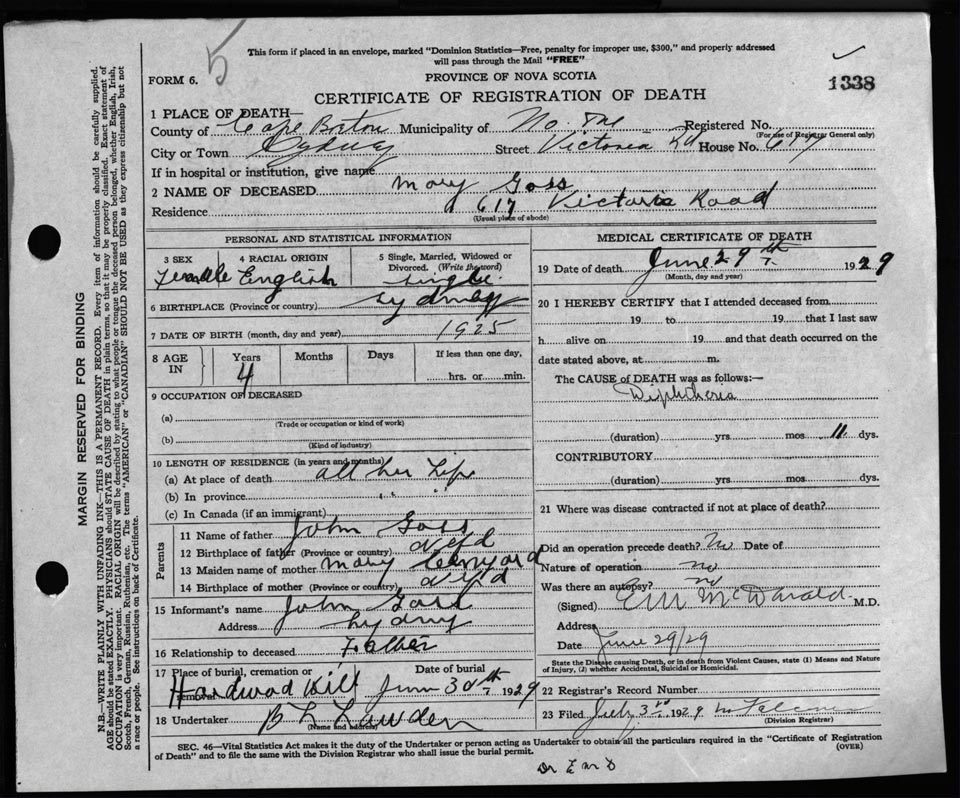 5
This form if placed in an envelope, marked "Dominion Statistics—Free, penalty for improper use, $300," and properly addressed
will pass through the Mail "FREE"
FORM 6.
PROVINCE OF NOVA SCOTIA
1338
CERTIFICATE OF REGISTRATION OF DEATH
1 PLACE OF DEATH—
County of Cape Breton Municipality of No. One Registered No.
(For use of Registrar General only)
City or Town Sydney Street Victoria Rd House No. 617
If in hospital or institution, give name
2 NAME OF DECEASED Mary Goss
Residence 617 Victoria Road
(Usual place of abode)
PERSONAL AND STATISTICAL INFORMATION
3 SEX 4 RACIAL ORIGIN 5 Single, Married, Widowed or
Divorced. (Write the word)
Female English Single
6 BIRTHPLACE (Province or country) Sydney
7 DATE OF BIRTH (month, day and year) 1925
8 AGE IN Years Months Days If less than one day,
4 hrs. or min.
9 OCCUPATION OF DECEASED
(a)
(Trade or occupation or kind of work)
(b)
(Kind of industry)
10 LENGTH OF RESIDENCE (in years and months)
(a) At place of death all her Life
(b) In province " "
(c) In Canada (if an immigrant)
Parents
11 Name of father John Goss
12 Birthplace of father (Province or country) Nfld
13 Maiden name of mother Mary
14 Birthplace of mother (Province or country) Nfld
15 Informant's name John Goss
Address Sydney
16 Relationship to deceased Father
17 Place of burial, cremation or removal Date of burial
Hardwood Hill June 30th 1929
18 Undertaker
(Name and address)
MEDICAL CERTIFICATE OF DEATH
19 Date of death June 29th 1929
(Month, day and year)
20 I HEREBY CERTIFY that I attended deceased from
19 to 19 that I last saw
h alive on 19 and that death occurred on the
date stated above, at m.
The CAUSE of DEATH was as follows:—
Diphtheria
(duration) yrs mos 11 dys.
CONTRIBUTORY
(duration) yrs. mos. dys.
21 Where was disease contracted if not at place of death?
Did an operation precede death? No Date of
Nature of operation no
Was there an autopsy? no
(Signed) E M McDonald M.D.
Address
Date June 29/29
State the Disease causing Death, or in death from Violent Causes, state (1) Means and Nature
of Injury, (2) whether Accidental, Suicidal or Homicidal.
22 Registrar's Record Number
23 Filed July 3rd 1929
(Division Registrar)
SEC. 46—Vital Statistics Act makes it the duty of the Undertaker or person acting as Undertaker to obtain all the particulars required in the "Certificate of Registration
of Death" and to file the same with the Division Registrar who shall issue the burial permit.
(OVER)
Dr E M D
MARGIN RESERVED FOR BINDING
N.B.—WRITE PLAINLY WITH UNFADING INK—THIS IS A PERMANENT RECORD. Every item of information should be carefully supplied.
AGE should be stated EXACTLY. PHYSICIANS should STATE CAUSE OF DEATH in plain terms, so that it may be properly classified. Exact statement of
OCCUPATION is very important. RACIAL ORIGIN will be described by stating to what people or tongue the deceased person belonged, whether English, Irish,
Scotch, French, German, Russian, Ruthenian, etc. The terms "AMERICAN" or "CANADIAN" SHOULD NOT BE USED as they express citizenship but not
a race or people. See instructions on back of Certificate.